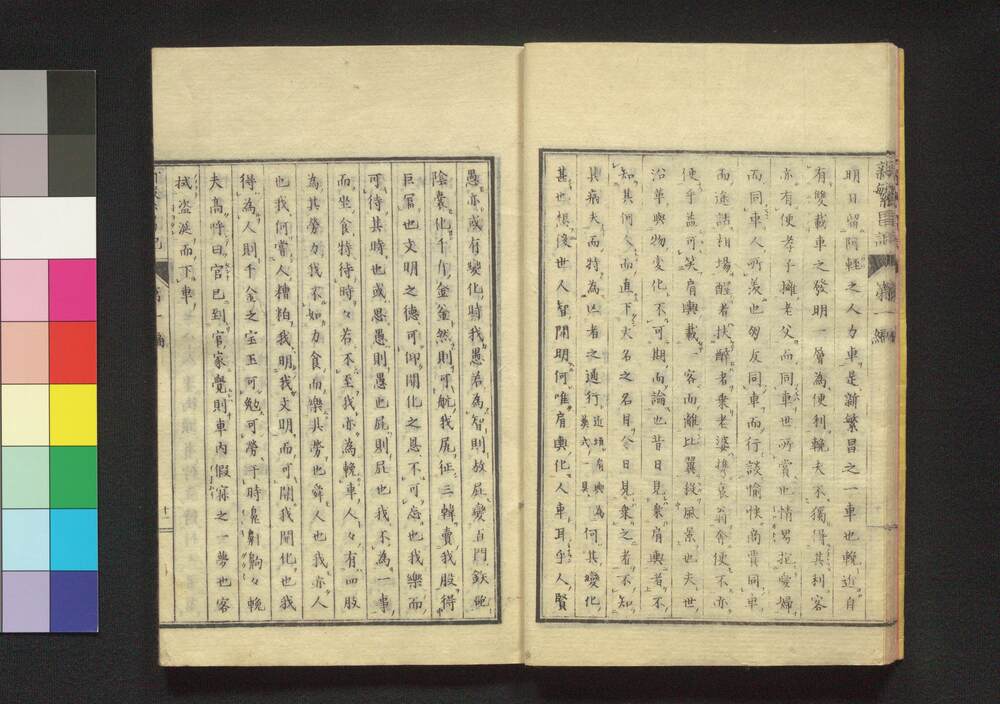 新繁昌記 初編
明日留阿輕之人力車是新繁昌之一車也輓近自
有雙載車之發明一層為便利輓夫不獨得其利客
亦有便孝子擁老父而同車世所賞也情男抱愛婦
而同車人所羨也匆友同車而行談愉快商賈同車
而途話相場醒者扶醉者乘老婆携衰翁舍便不亦
便乎益可笑肩輿載一客而離比翼殺風景也夫世
沿革與物變化不可期而論也昔日見乘肩輿者不
知其何人而直下大名之名目今日見乘之者不知
其病夫而特為凶者之通行近頃有輿為葬式一具何其變化
甚也想後世人智開明何唯肩輿化人車耳乎人賢
愚亦或有變化時我愚若為智則放屁變百門鉄砲
陰嚢化千斤金釜然則可航我尻征三韓賣我股得
巨冨也文明之德可仰開化之恩不可忘也我樂而
可待其時也或思愚則愚也屁則屁也我不為一事
而坐食特待時々若不至我亦為輓車人々有四股
為其勞力我不如力食而樂其勞也舜人也我亦人
也我何嘗人糟粕我明我文明而可開我開化也我
得為人則千金之宝玉可勉可勞于時鼻齁々輓
夫高呼曰官已到官家覺則車内假寐之一夢也客
拭盗涎而下車
十一